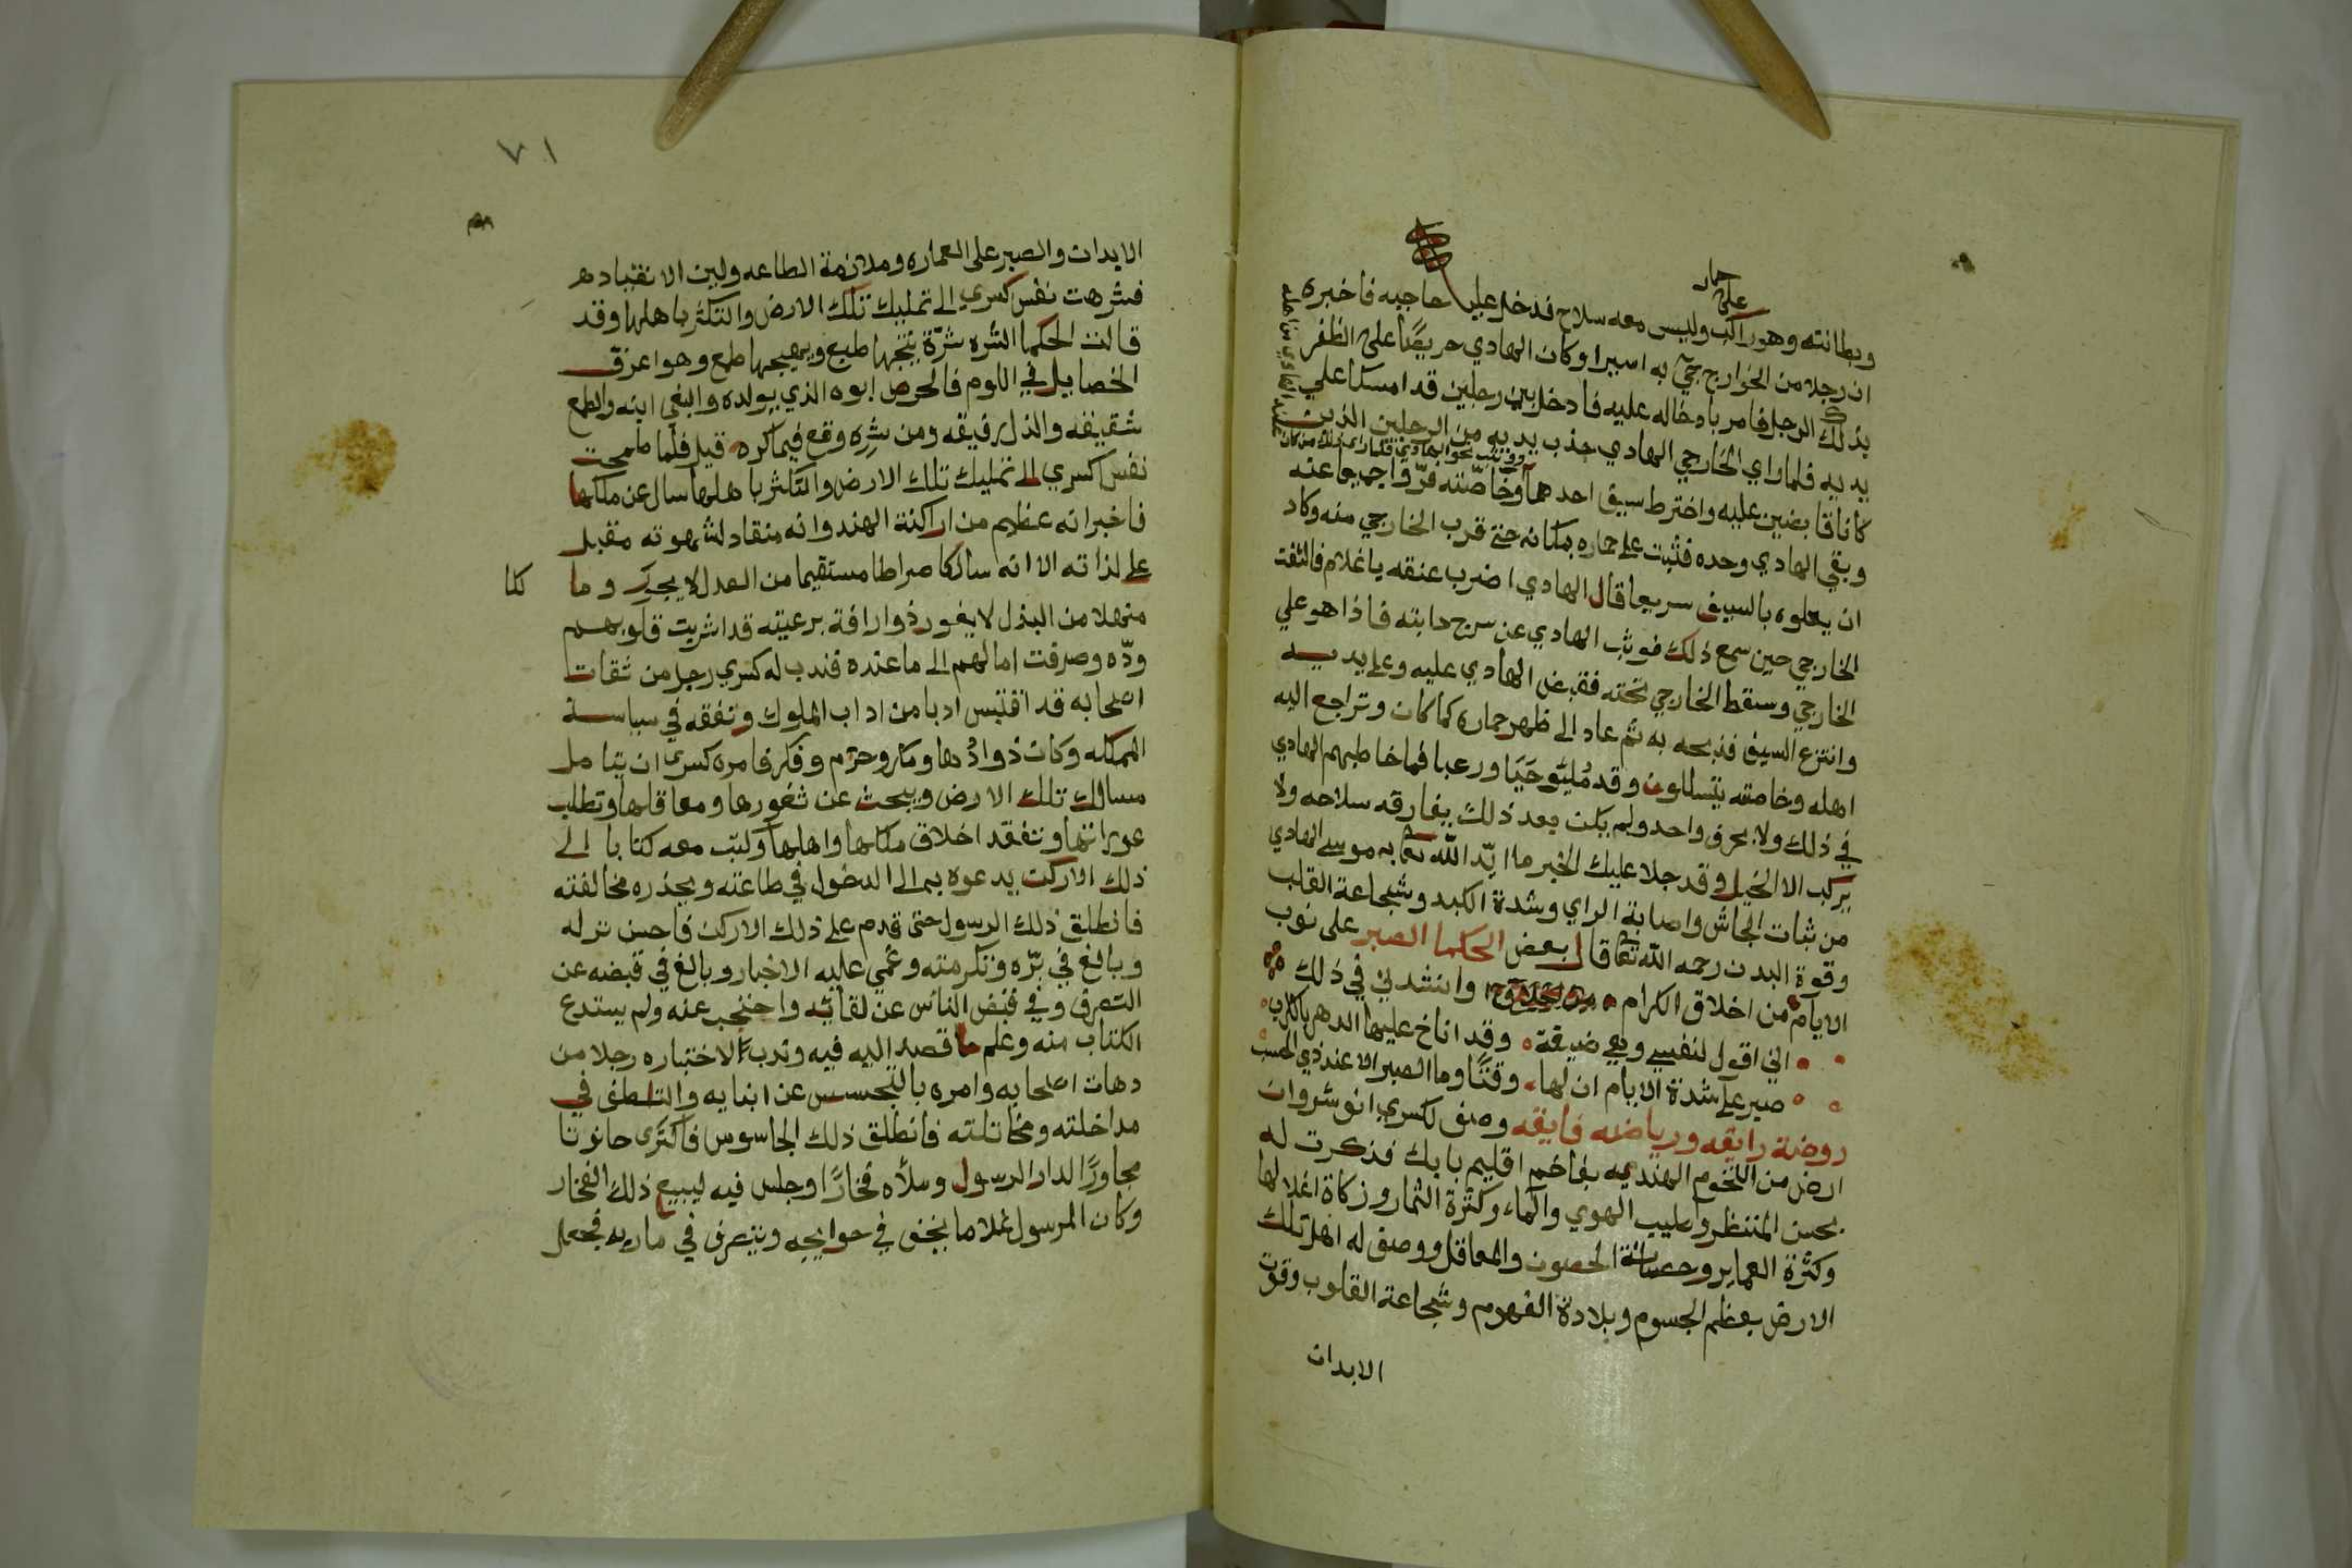 على حمار
وبطانته وهو راكب وليس معه سلاح فدخل عليه حاجبه فاخبره
ان رجلا من الخوارج جيّ به اسيرا وكان الهادي حريصًا على الظفر
بذلك الرجل فامر بادخاله عليه فادخل بين رجلين قد امسكا علي
يديه فلما راي الخارجي الهادي جذب يديه من الرجلين الذين
كانا قابضين عليه واخترط سيف احدهما ووثب نحو الهادي فلما راى ذلك من كان وخاصّته فرّوا جميعا عنه
وبقي الهادي وحده فثبت على حماره بمكانه حتى قرب الخارجي منه وكاد
ان يعلوه بالسيف سريعا قال الهادي اضرب عنقه يا غلام فالتفت
الخارجي حين سمع ذلك فوثب الهادي عن سرج دابته فاذا هو علي
الخارجي وسقط الخارجي تحته فقبض الهادي عليه وعلى يديه
وانتزع السيف فذبحه به ثم عاد الى ظهر حماره كما كان وتراجع اليه
اهله وخاصته يتسللون وقد مُليَو حَيَا ورعبا فما خاطبهم الهادي
في ذلك ولا بحرف واحد ولم يكن بعد ذلك يفارقه سلاحه ولا
يركب الا الخيل وقد جلا عليك الخبر ما ايّد الله تعا به موسى الهادي
من ثبات الجاش واصابة الراي وشدة الكبد وشجاعة القلب
وقوة البدن رحمه الله تعا قال بعض الحكما الصبر على نوب
الايام من اخلاق الكرام وانشدني في ذلك
اني اقول لنفسي وهي ضيقة وقد اناخ عليها الدهر بالكرب
صبر على شدة الايام ان لها وقتًا وما الصبر الا عند ذي الحسب
روضة رايقه ورياضه فايقه وصف لكسري انوشروان
ارض من التخوم الهنديه بفاخم اقليم بابك فذكرت له
بحسن المنتظر وطيب الهوي والماء وكثرة الثمار وزكاة اغلالها
وكثرة العماير وحصانة الحصون والمعاقل ووصف له اهل تلك
الارض بعظم الجسوم وبلادة الفهوم وشجاعة القلوب وقوة
الابدان
٧١
الابدان والصبر على العماره وملازمة الطاعه ولين الانقياد هر
فشرهت نفس كسري الى تمليك تلك الارض والتكثر باهلها وقد
قالت الحكما الشره شرّة ينتجها طبع ويهيجها طمع وهو اعرق
الخصايل في اللوم فالحرص ابوه الذي يولده والبغي ابنه والطمع
شقيقه والذل رفيقه ومن شره وقع فيما كره قيل فلما طمحت
نفس كسري الى تمليك تلك الارض والتكثر باهلها سال عن ملكها
فاخبر انه عظيم من اراكنة الهند وانه منقاد لشهوته مقبل
على لذاته الا انه سالكا صراطا مستقيما من العدل لا يجور وما كنا
منهلا من البذل لا يغور ذوا رافة برعيته قد اشربت قلوبهم
ودّه وصرفت امالهم الى ما عنده فندب له كسري رجل من ثقات
اصحابه قد اقتبس ادبا من اداب الملوك وتفقه في سياسة
المملكه وكان ذوا دُها ومكر وحزم وفكر فامره كسرى ان يتامل
مسالك تلك الارض ويبحث عن ثغورها ومعاقلها وتطلب
عوراتها وتفقد اخلاق ملكها واهلها وكتب معه كتابا الى
ذلك الاركن يدعوه بها الى الدخول في طاعته ويحذره مخالفته
فانطلق ذلك الرسول حتى قدم على ذلك الاركن فاحسن نزله
وبالغ في برّه وتكرمته وعُمي عليه الاخبار وبالغ في قبضه عن
التصرف وفي قبض الناس عن لقائه واحتجب عنه ولم يستدع
الكتاب منه وعلم ما قصد اليه فيه وندب الاختباره رجلا من
دهات اصحابه وامره بالتجسس عن ابنايه والتلطف في
مداخلته ومخاتلته فانطلق ذلك الجاسوس فاكترى حانوتا
مجاورًا لدار الرسول وملأه فخارًا وجلس فيه ليبيع ذلك الفخار
وكان المرسول غلاما يخف في حوايجه ويتصرف في ماربه فجعل